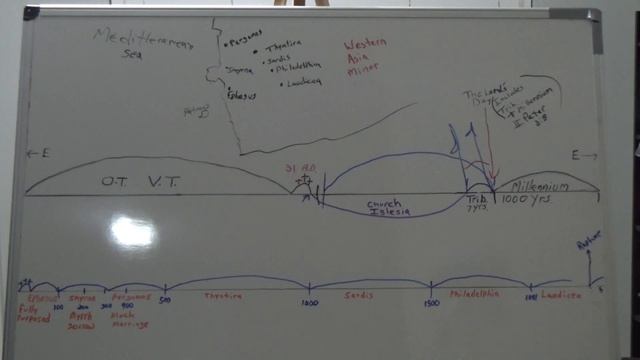 Mediterranean
Sea
Pergamos
Thyatira
Smyrna
Sardis
Philadelphia
Ephesus
Laodicea
Western
Asia
Minor
Patmos
The Lord's
Day Includes
Trib.
+ Millennium
II Peter
3:8
← E
E →
O.T. V.T.
31 A.D.
Church
Iglesia
Trib.
7 yrs.
Millennium
1000 yrs.
Rapture
Ephesus
Fully
Purposed
100
Smyrna
200
Myrrh
300
Pergamos
400
Much
Marriage
500
Thyatira
1000
Sardis
1500
Philadelphia
Laodicea